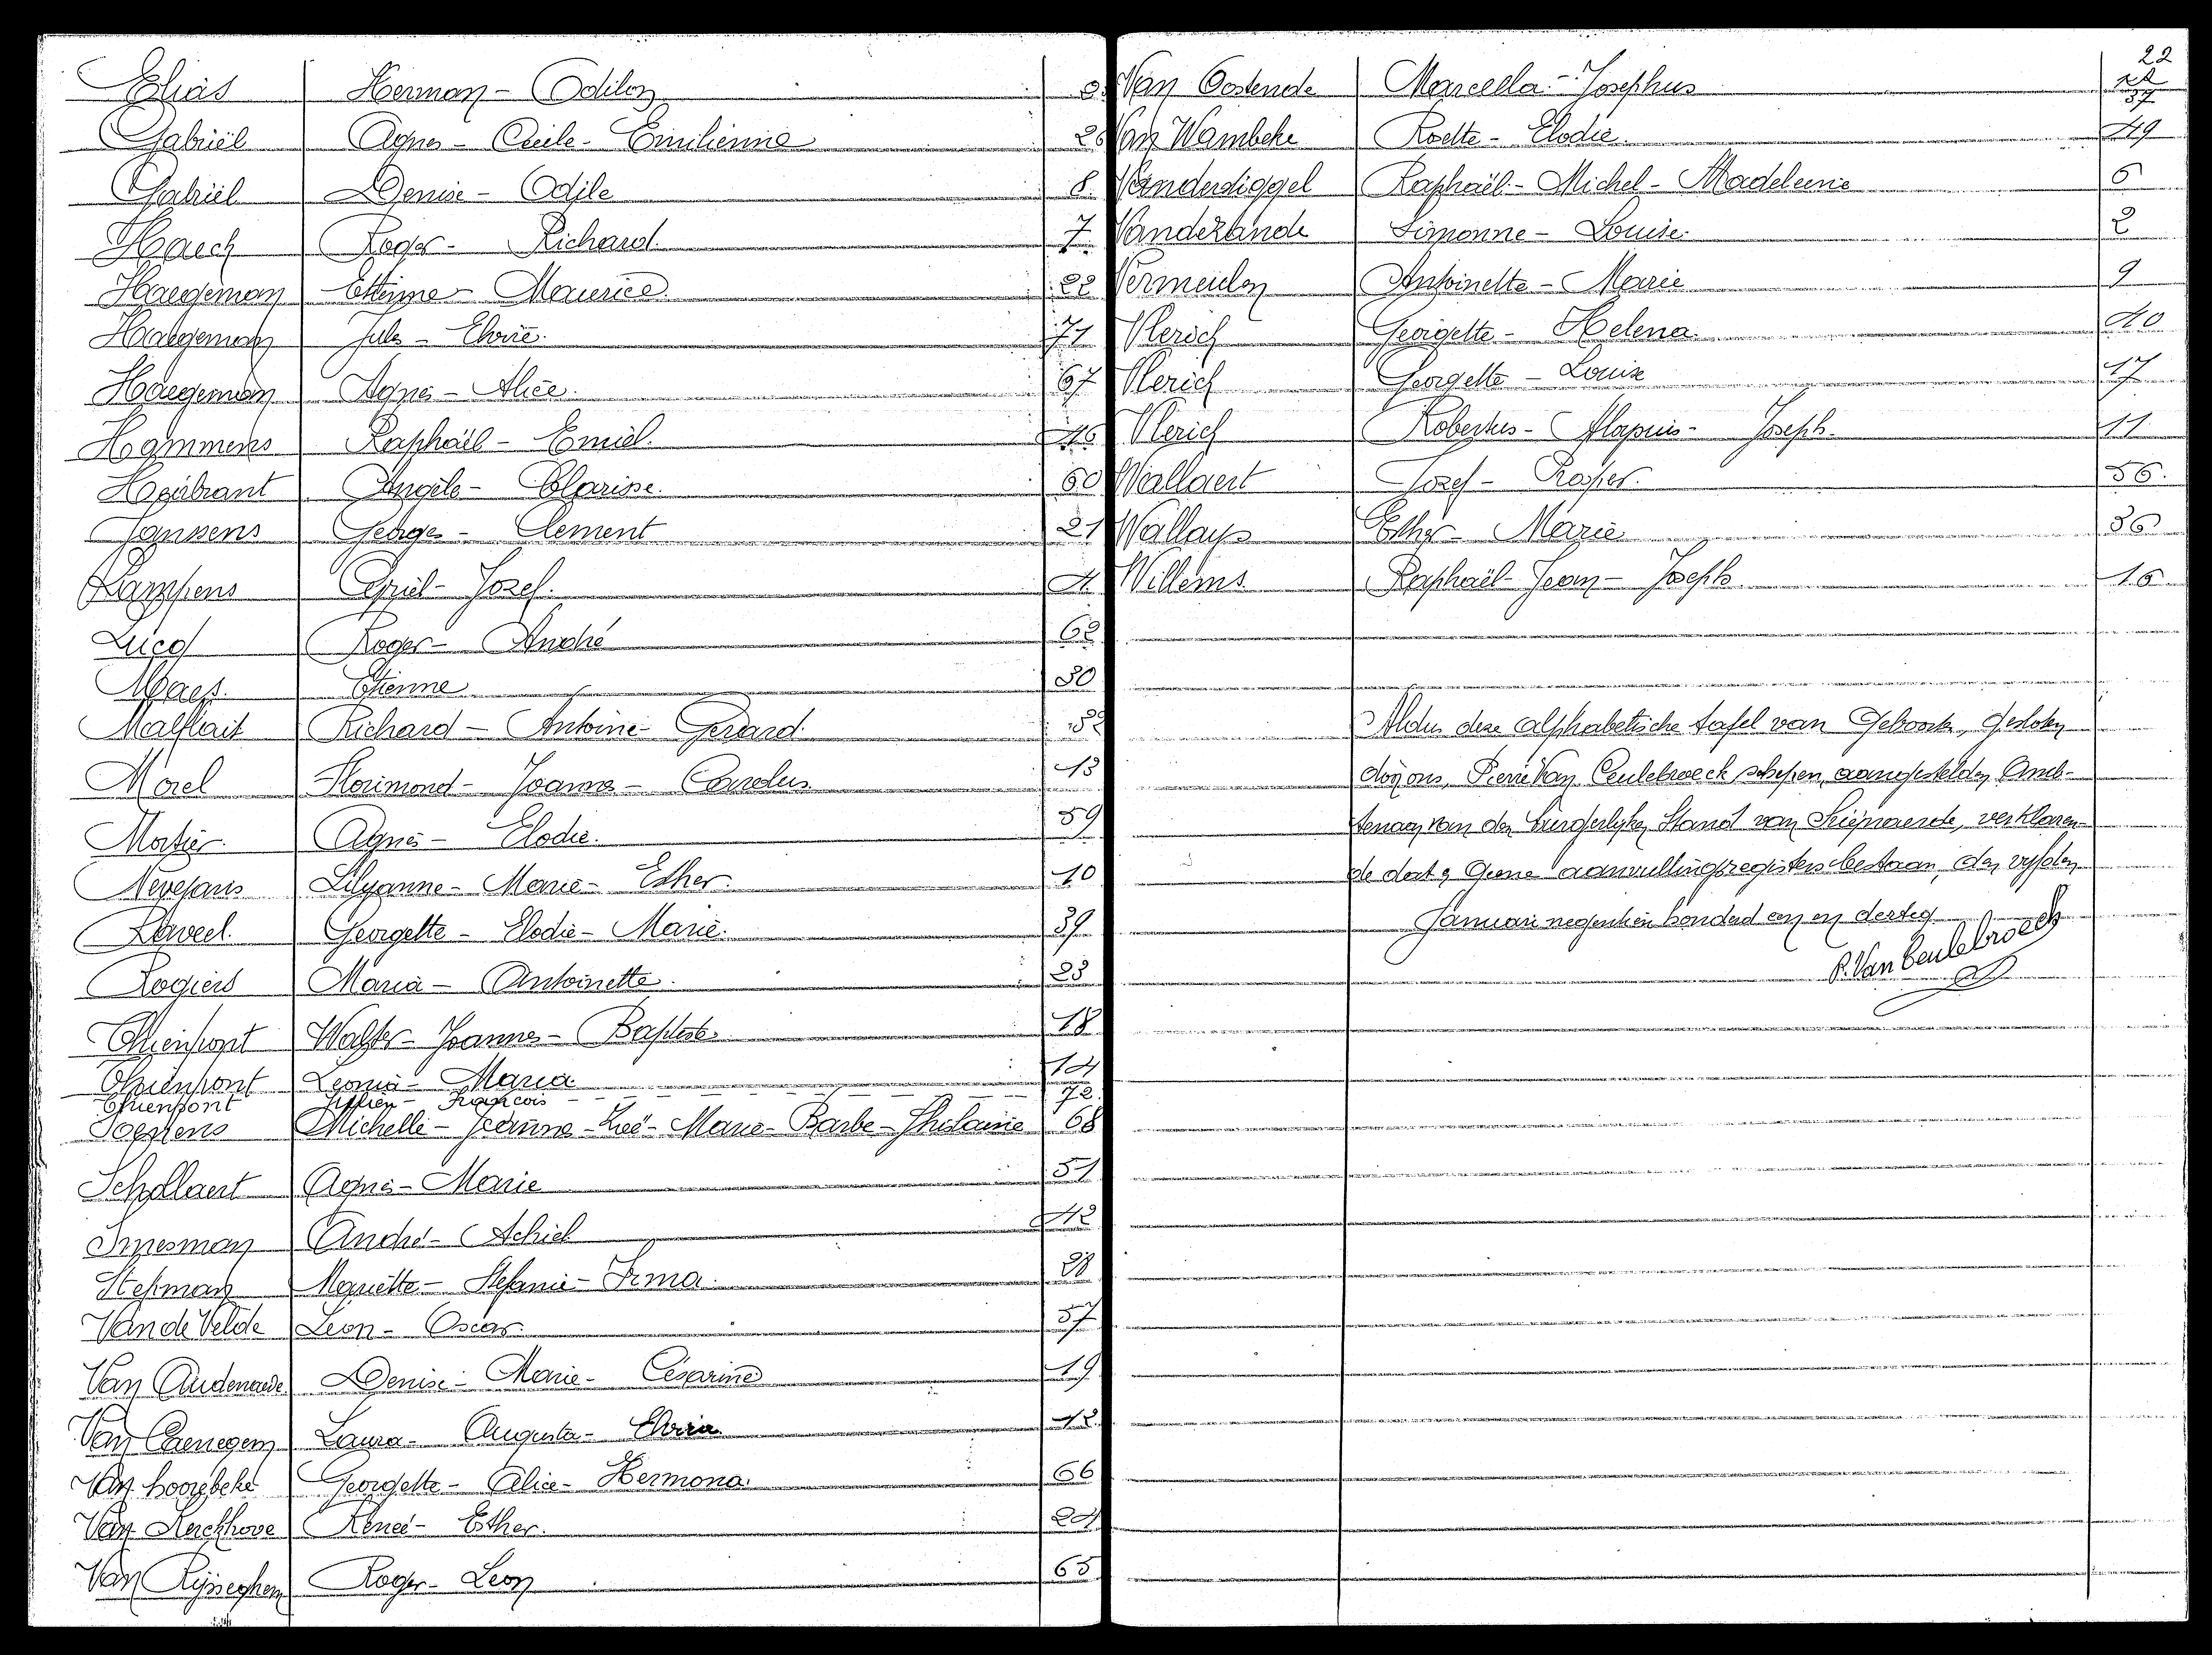 Elias Herman - Odilon
Gabriël Agnes - Cecile - Emilienne 26
Gabriël Denise - Odile 8.
Haeck Roger - Richard. 7
Haegeman Etienne - Maurice. 22
Haegeman Jules - Elvire. 71
Haegeman Agnes - Alice. 67
Hammens Raphaël - Emiel. 46
Angèle - Clarisse. 60
Janssens Georges - Clement 21
Lampens Cyriel - Jozef. 4.
Lucq Roger - André 62
Maes. Etienne 30
Malfliet Richard - Antoine - Gerard.
Morel Florimond - Joannes - Carolus. 13
Mortier. Agnes - Elodie. 59
Nevejans Lilyanne - Marie - Esther. 10
Raveel. Georgette - Elodie - Marie. 39
Rogiers Maria - Antoinette. 23
Thienpont Walter - Joannes - Baptiste 18
Thienpont Leonia - Maria 14
Thienpont François 72
Michelle - Jeanne - Zoë - Marie - Barbe - Ghislaine 68
Schollaert Agnes - Marie 51
Smesman André - Achiel 42
Stepman Mariette - Stefanie - Irma. 28
Van de Velde Leon - Oscar. 57
Van Audenaerde Denise - Marie - Césarine 19
Van Caenegem Laura - Augusta - Elvira 12.
Van hoorebeke Georgette - Alice - Hermona. 66
Van Kerckhove Renée - Esther. 24
Van Rijsseghem Roger - Leon 65
22
Van Oostende Marcella - Josephus 37
Van Wambeke Roette - Elodie. 49
Vanderdiggel Raphaël - Michel - Madeleine 5
Vanderlande Simonne - Louise. 2
Vermeulen Antoinette - Marie 9
Vlerick Georgette - Helena. 40
Vlerick Georgette - Louise 17
Vlerick Robertus - Joseph. 11
Wallaert Jozef - Prosper. 56.
Wallays Esther - Marie 36
Willems Raphaël - Jean - Joseph 16
Aldus deze alphabetische tafel van Geboorten, gesloten
door ons, Pierre Van Ceulebroeck schepen, aangestelden Amb-
tenaar van den burgerlyken Stand van verklaren-
de dat er geene aanvullingsregisters bestaan, den vyfden
Januari negentien honderd een en dertig
P. Van Ceulebroeck